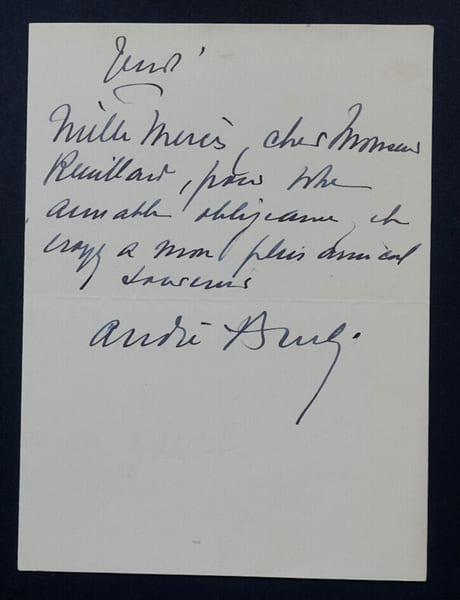 Jeudi
Mille Mercis, cher Monsieur
, pour votre
aimable obligeance, et
croyez à mon plus amical
souvenir
André Brulé.